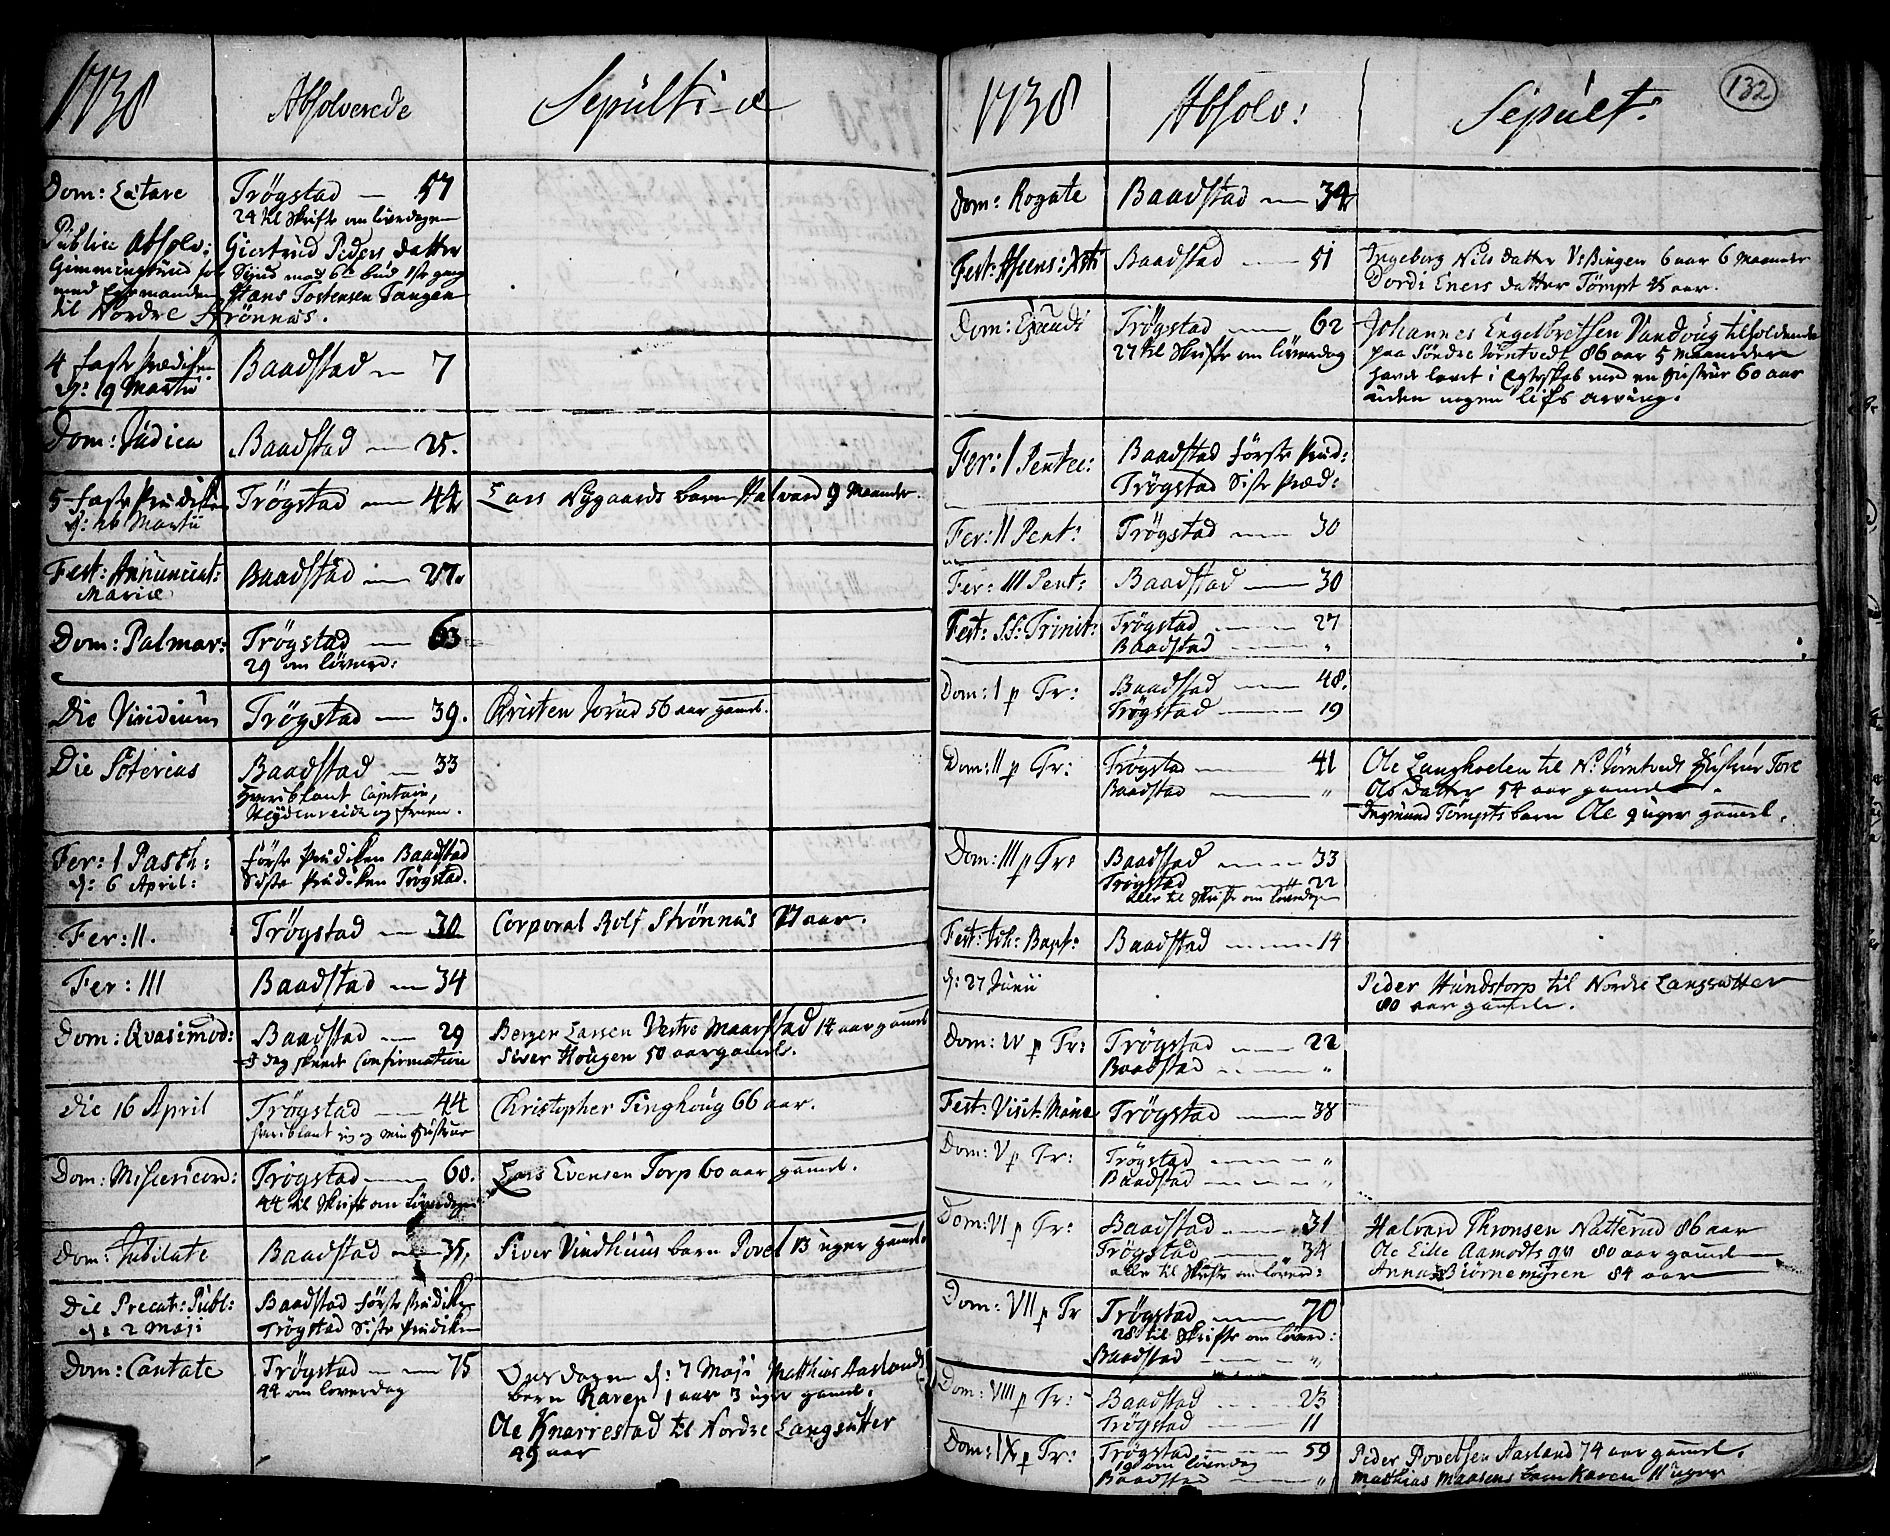 1738
Absolverede
Sepulti-æ
Dom: Lætare
Trøgstad — 57
24 til Skrifte om løverdagen
Public Absolv:
Giertrud Peders datter
Gimmingsrud for
Synd mod 6te bud 1ste gang
med
Hans Tostensen Tangen
til Nordre Strønnæs.
4 faste Prædiken
d: 19 Martii
Baadstad — 7
Dom: Judica
Baadstad — 25.
5 faste Prædiken
d: 26 Martii
Trøgstad — 44
Lars Nygaards barn Halvard 9 Maaneder.
Fest: Annunciat:
Mariæ
Baadstad — 27.
Dom: Palmar:
Trøgstad — 63
29 om løverd:
Die Viridium
Trøgstad — 39.
Kristen Jorud 56 aar gamel.
Die Soterias
Baadstad — 33
Hvoriblant Capitain
og fruen.
Fer: I Pasch:
d: 6 April:
første Prædiken Baadstad
Siste Prædiken Trøgstad.
Fer: II.
Trøgstad — 30
Corporal Rolf Strønnæs 77 aar.
Fer: III
Baadstad — 34
Dom: Qvasimod:
Baadstad — 29
I dag skeedt Confirmation
Berger Larsen Vestre Maarstad 14 aar gamel
Siver Hougen 50 aar gamel.
Die 16 April
Trøgstad — 44
hvoriblant jeg og min Hustrue
Kristopher Tinghoug 66 aar.
Dom: Misericord:
Trøgstad — 60.
44 til Skrifte om løverdagen
Lars Evensen Torp 60 aar gamel.
Dom: Jubilate
Baadstad — 35,
Siver Vindhuus barn Povel 13 uger gamel
Die Precat: Publ:
d: 2 Maji
Baadstad første Prædiken
Trøgstad Siste Prædiken
Dom: Cantate
Trøgstad — 75
44 om løverdag
Onsdagen d: 7 Maji Matthias Aaslands
barn Karen 1 aar 3 uger gamel.
Ole Knarrestad til Nordre Langsætter
49 aar
1738
Absolv:
Sepult:
132
Dom: Rogate
Baadstad — 34
Fest: Ascens: Xsti
Baadstad — 51
Ingeborg Nils datter 6 aar 6 Maaneder
Dordi Eners datter Tømpt 45 aar.
Dom: Exaudi
Trøgstad — 62
27 til Skrifte om løverdag
Johannes Engelbretsen Vandoug tilholdende
paa Søndre Jørntvedt 86 aar 5 Maaneder
havde levet i Egteskab med en Hustrue 60 aar
uden nogen lifs arving.
Fer: I Pentec:
Baadstad første Præd:
Trøgstad Siste Præd:
Fer: II Pent:
Trøgstad — 30
Fer: III Pent:
Baadstad — 30
Fest: SS: Trinit:
Trøgstad — 27
Baadstad — "
Dom: I p Tr:
Baadstad — 48.
Trøgstad — 19
Dom: II p Tr:
Trøgstad — 41
Baadstad — "
Ole Langholen til N: Jørntvedt Hustrue Tore
Ols Datter 54 aar gamel.
Ingmund Tømpts barn Ole 9 uger gamel.
Dom: III p Tr:
Baadstad — 33
Trøgstad — 22
alle til Skrifte om løverdagen
Fest: Joh: Bapt:
Baadstad — 14
d: 27 Junii
Peder Hundstorp til Nordre Langsætter
80 aar gamel.
Dom: IV p Tr:
Trøgstad — 22
Baadstad — "
Fest: Visit: Mariæ
Trøgstad — 38
Dom: V p Tr:
Trøgstad — "
Baadstad — "
Dom: VI p Tr:
Baadstad — 31
Trøgstad — 34
alle til Skrifte om løverd:
Halvard Thronsen Natterud 86 aar
Ole Eilie Aamodts 80 aar gamel
Anna Biørnemyren 84 aar
Dom: VII p Tr
Trøgstad — 70
28 til Skrifte om løverd:
Baadstad — "
Dom: VIII p Tr:
Baadstad — 23
Trøgstad — 11
Dom: IX p Tr:
Trøgstad — 59
19 om løverdag
Baadstad — "
Peder Povelsen Aasland 74 aar gamel.
Matthias Maasens barn Karen 11 uger